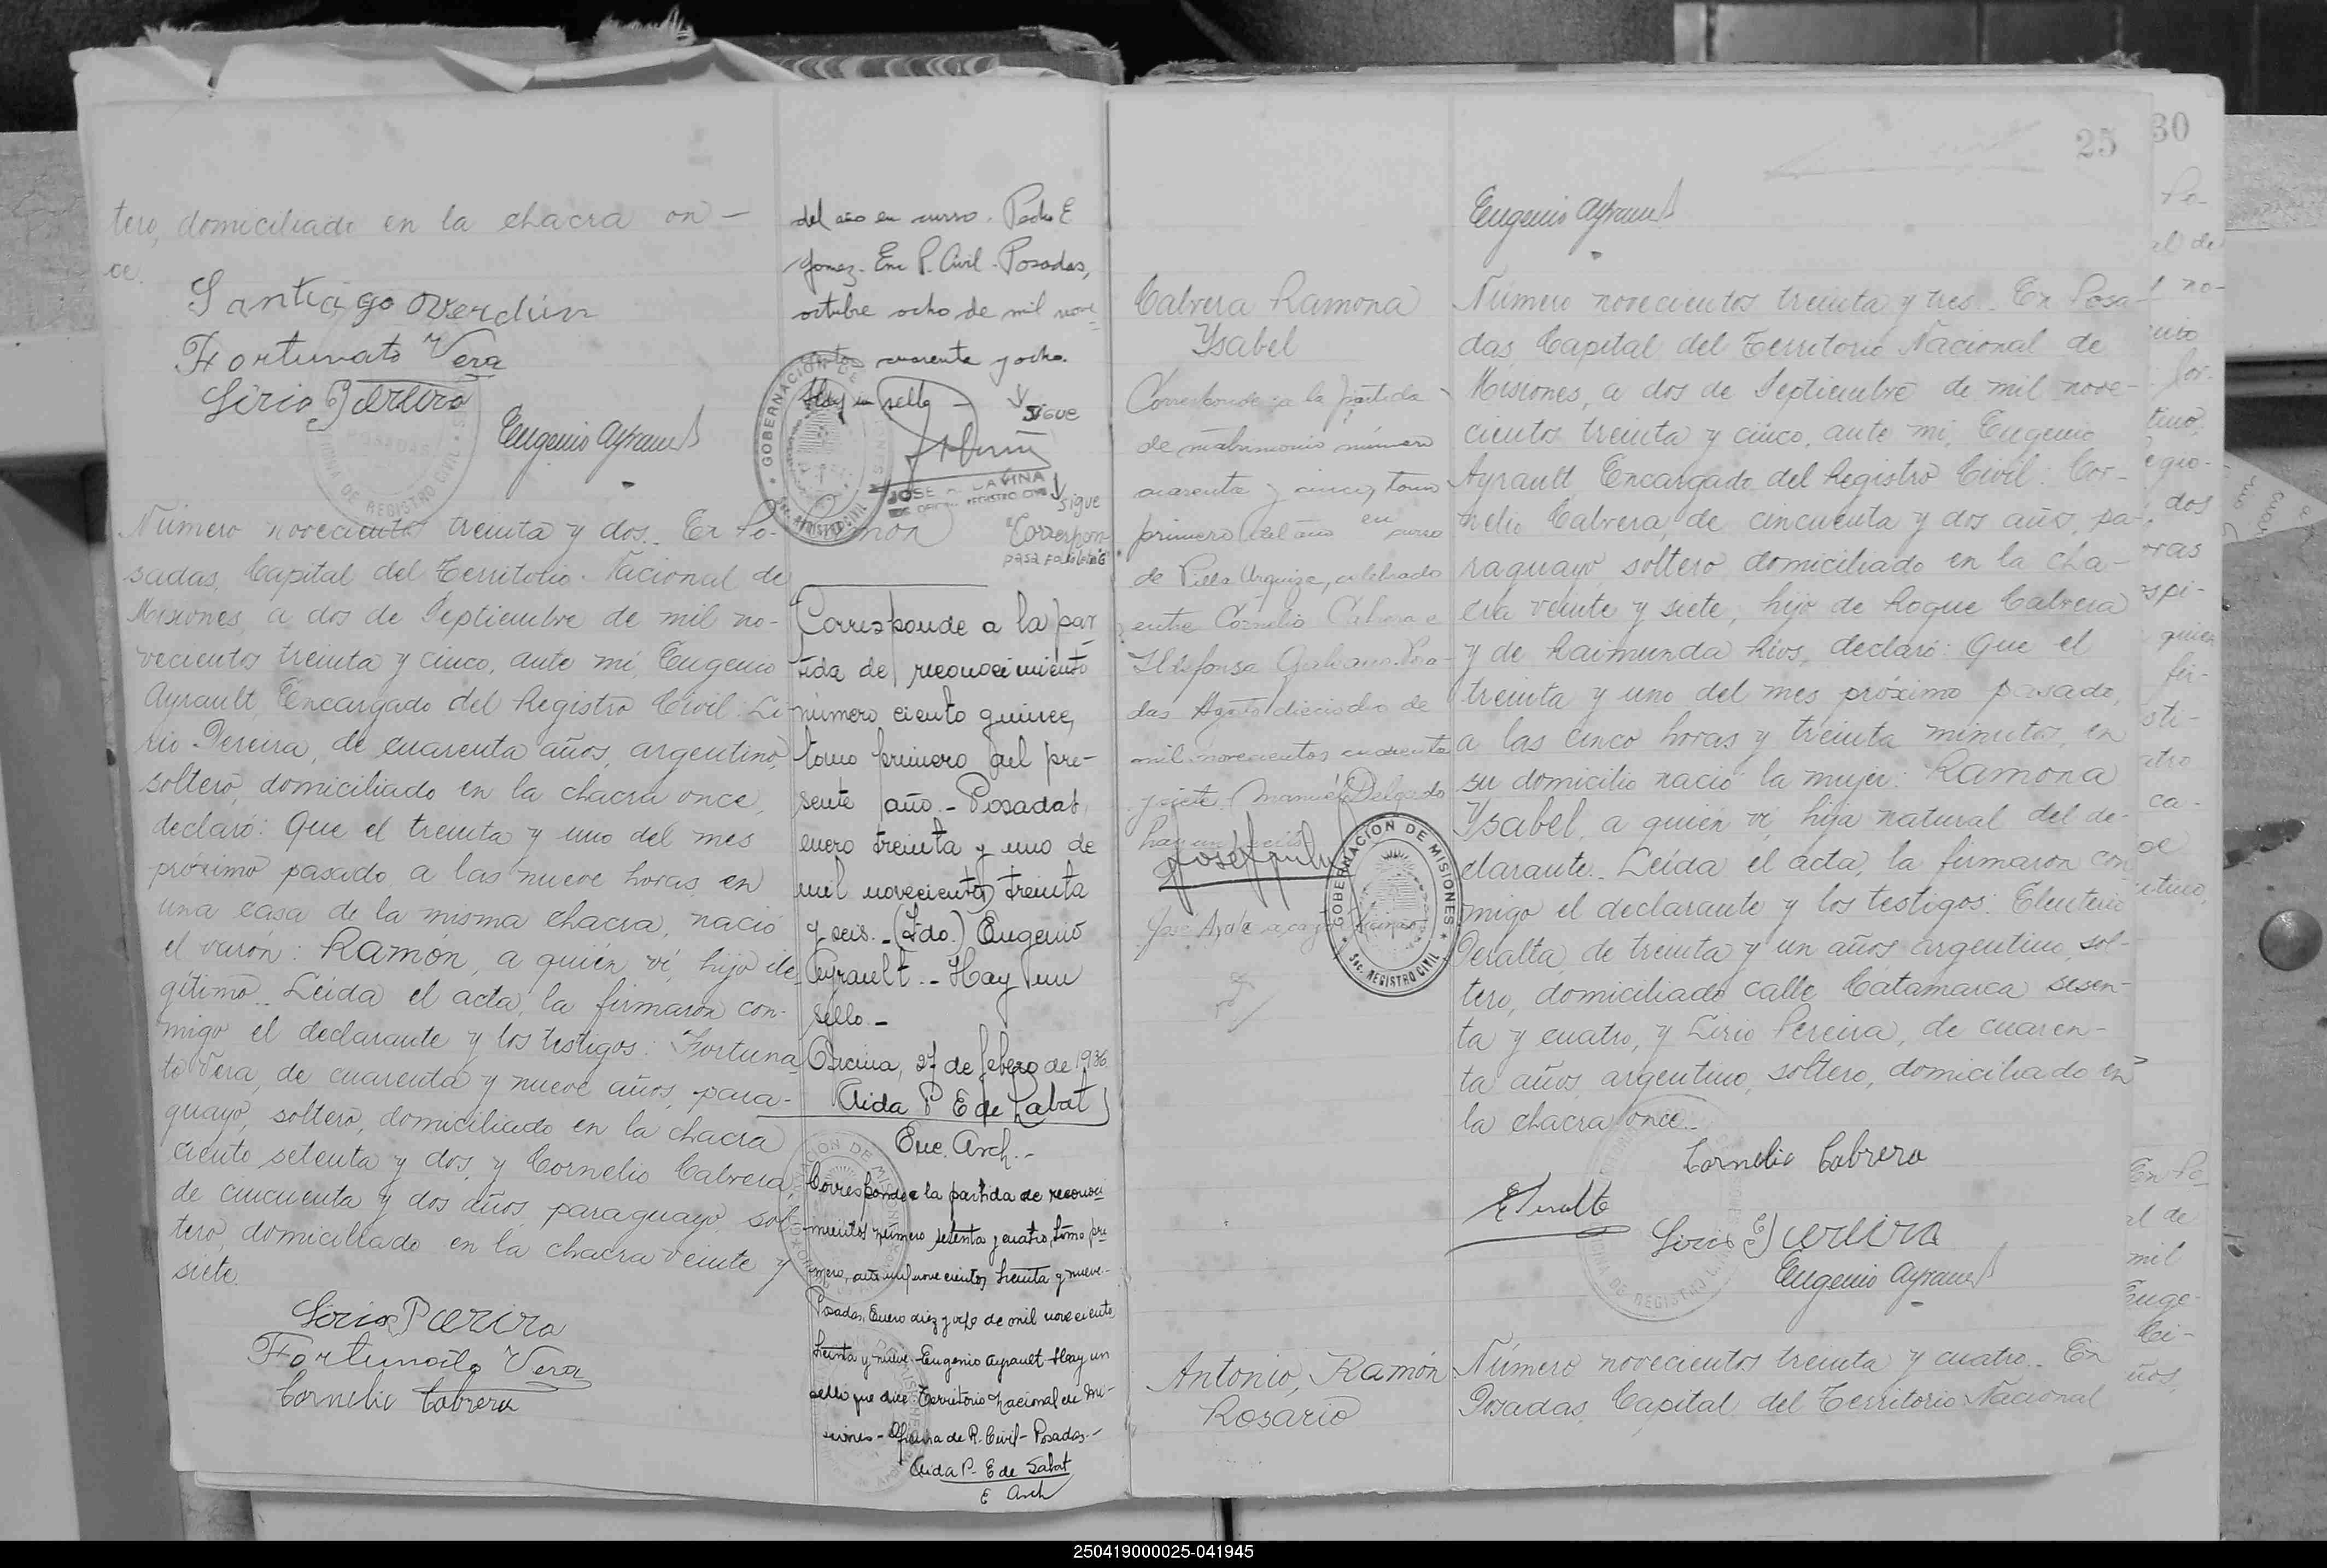 tero, domiciliado en la chacra on-
ce.
Santiago Verdún
Fortunato Vera
Lirio Pereira
Eugenio Ayrault
Número novecientos treinta y dos.. En Po-
sadas, Capital del Territorio Nacional de
Misiones, a dos de Septiembre de mil no-
vecientos treinta y cinco, ante mí, Eugenio
Ayrault, Encargado del Registro Civil: Li-
rio Pereira, de cuarenta años, argentino,
soltero, domiciliado en la chacra once,
declaró: Que el treinta y uno del mes
próximo pasado, a las nueve horas, en
una casa de la misma chacra, nació
el varón: Ramón, a quién ví, hijo ile-
gítimo.. Leída el acta, la firmaron con-
migo el declarante y los testigos: Fortuna-
to Vera, de cuarenta y nueve años, para-
guayo, soltero, domiciliado en la chacra
ciento setenta y dos, y Cornelio Cabrera,
de cincuenta y dos años, paraguayo, sol-
tero, domiciliado en la chacra veinte y
siete.
Lirio Pereira
Fortunato Vera
Cornelio Cabrera
del año en curso. Pedro E
Gomez. Enc R. Civil - Posadas,
octubre ocho de mil nove
cientos cuarenta y ocho.
Hay un sello -
Sigue
GOBERNACION DE MISIONES
Sec. REGISTRO CIVIL
Sigue
Ramón
Correspon
Corresponde a la par
tida de reconocimiento
número ciento quince,
tomo primero del pre-
sente año. - Posadas,
enero treinta y uno de
mil novecientos treinta
y seis. - (Fdo.) Eugenio
Ayrault. - Hay un
sello. -
Oficina, 27 de febrero de 1936
Aida P E de Labat
Enc. Arch. -
Corresponde a la partida de reconoci
mientos número setenta y cuatro, tomo pri
mero, año mil novecientos treinta y nueve -
Posadas, Enero diez y ocho de mil novecientos
treinta y nueve - Eugenio Ayrault - Hay un
sello que dice Territorio Nacional de Mi-
siones - Oficina de R. Civil - Posadas. -
Aida P. E de Labat
E Arch
Cabrera Ramona
Ysabel
Corresponde a la partida
de matrimonio número
cuarenta y cinco, tomo
primero del año en curso
de Villa Urquiza, celebrado
entre Cornelio Cabrera e
Ildefonsa Galeano. Posa-
das Agosto dieciocho de
mil novecientos cuarenta
y siete. Manuel Delgado
hay un sello
GOBERNACION DE MISIONES
Sec. REGISTRO CIVIL
Antonio, Ramón
Rosario
25
Eugenio Ayrault
Número novecientos treinta y tres.. En Posa-
das, Capital del Territorio Nacional de
Misiones, a dos de Septiembre de mil nove-
cientos treinta y cinco, ante mí, Eugenio
Ayrault, Encargado del Registro Civil: Cor-
nelio Cabrera, de cincuenta y dos años, pa-
raguayo, soltero, domiciliado en la cha-
cra veinte y siete, hijo de Roque Cabrera
y de Raimunda Ríos, declaró: Que el
treinta y uno del mes próximo pasado,
a las cinco horas y treinta minutos, en
su domicilio nació la mujer: Ramona
Ysabel, a quién ví, hija natural del de-
clarante.. Leída el acta, la firmaron con
migo el declarante y los testigos: Eleuterio
Peralta, de treinta y un años, argentino, sol-
tero, domiciliado calle Catamarca sesen-
ta y cuatro, y Lirio Pereira, de cuaren-
ta años, argentino, soltero, domiciliado en
la chacra once.-
Cornelio Cabrera
E Peralta
Lirio Pereira
Eugenio Ayrault
Número novecientos treinta y cuatro.. En
Posadas, Capital del Territorio Nacional
30
250419000025-041945